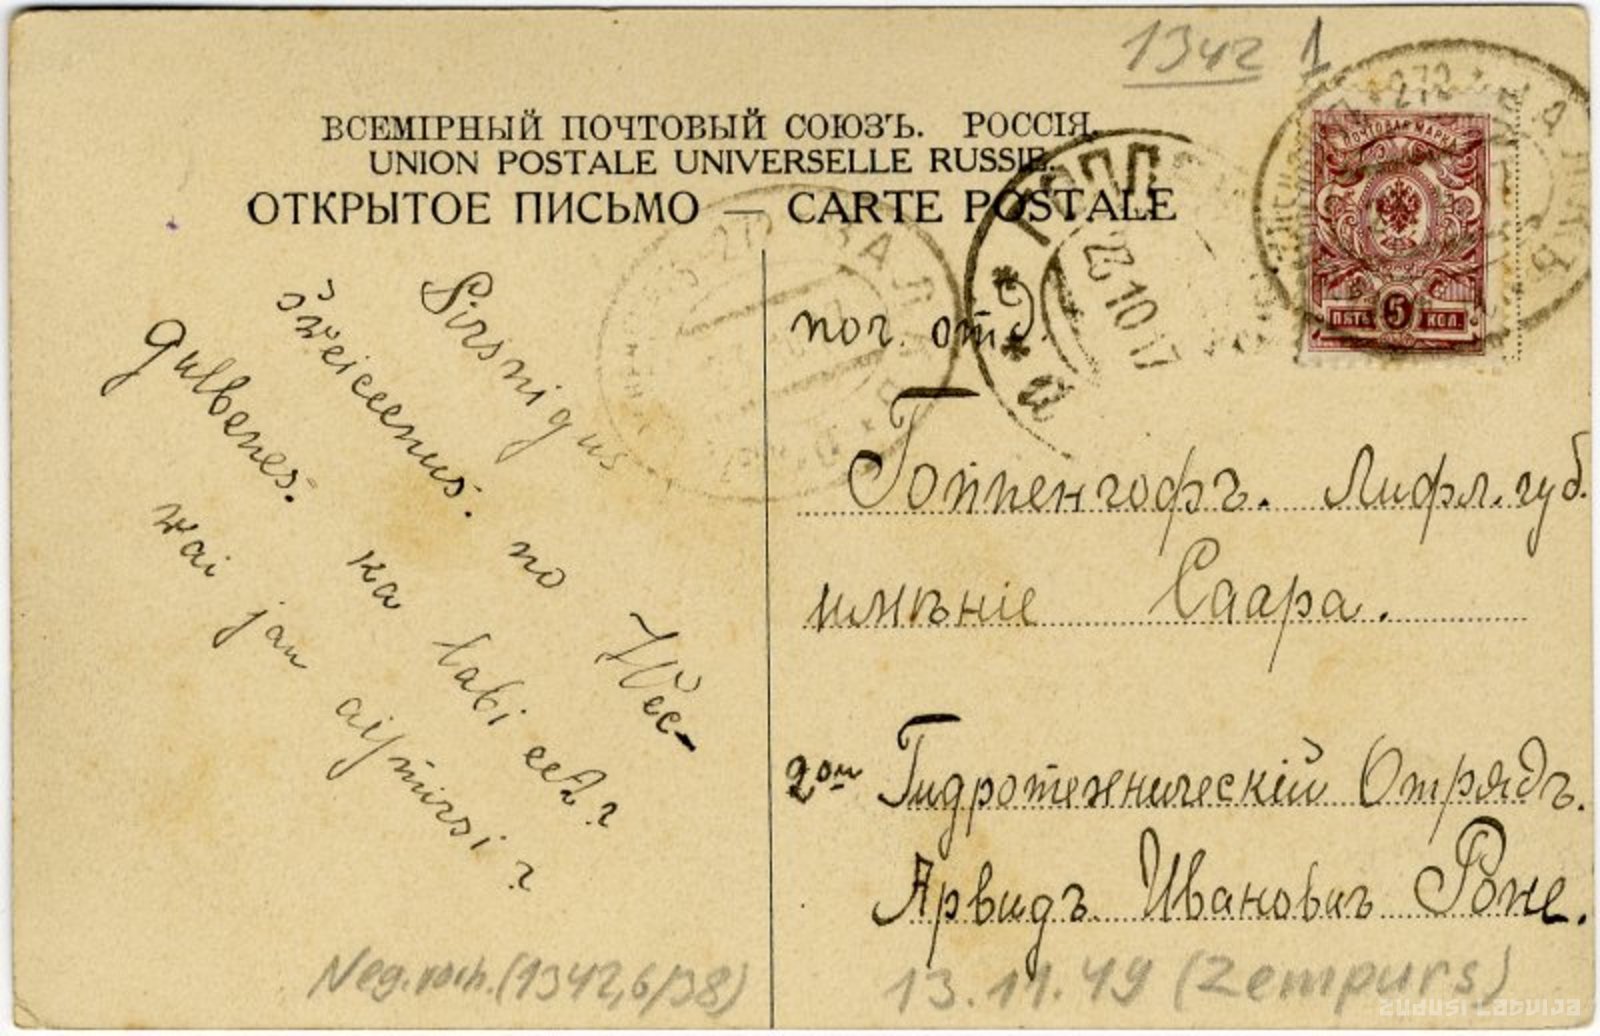 1342 1
ВСЕМІРНЫЙ ПОЧТОВЫЙ СОЮЗЪ. РОССІЯ.
UNION POSTALE UNIVERSELLE RUSSIE.
ОТКРЫТОЕ ПИСЬМО — CARTE POSTALE
ПОЧТОВАЯ МАРКА
5
ПЯТЬ КОП.
23 10 17
272
ВАЛКЪ
Sirsnigus
sweiceenus. no Wec-
Gulbenes. ka labi eet?
wai jau aismirsi?
поч. отд.
Гоппенгофъ. Лифл. губ.
имѣніе Саара.
2ой Гидротехническій Отрядъ.
Арвидъ Ивановичъ Роне.
Neg. noch. (1342,6/38)
13.11.49 (Zempurs)
ZUDUSI LATVIJA